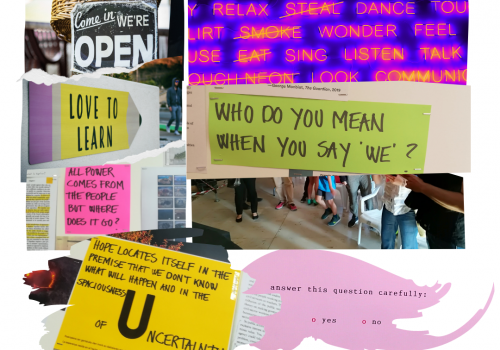 Come in WE'RE
OPEN
RELAX STEAL DANCE TOU
LIRT SMOKE WONDER FEEL
USE EAT SING LISTEN TALK
OUCH NEON LOOK COMMUNIC
LOVE TO
LEARN
WHO DO YOU MEAN
WHEN YOU SAY 'WE'?
ALL POWER
COMES FROM
THE PEOPLE
BUT WHERE
DOES IT GO?
HOPE LOCATES ITSELF IN THE
PREMISE THAT WE DON'T KNOW
WHAT WILL HAPPEN AND IN THE
SPACIOUSNESS
OF UNCERTAINT
answer this question carefully:
o yes o no